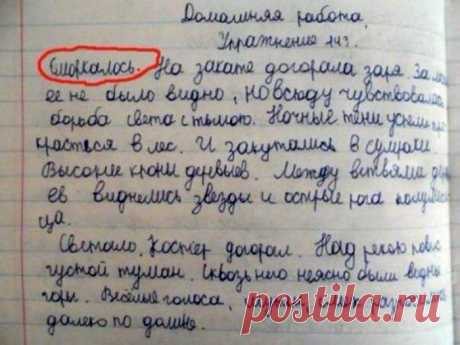 Домашняя работа.
Упражнение 143.
Сморкалось. На закате догорала заря. За
ее не было видно, но всюду чувствовалась
борьба света с тьмою. Ночные тени успели
красться в лес. И закутались в сумраки
Высокие кроны деревьев. Между ветвями
ев виднелись звезды и острые рога
ца.
Светало. Костёр догорал. Над рекою повис
густой туман. Сквозь него неясно были видны
горы. Весёлые голоса,
далеко по долине.
postila.ru